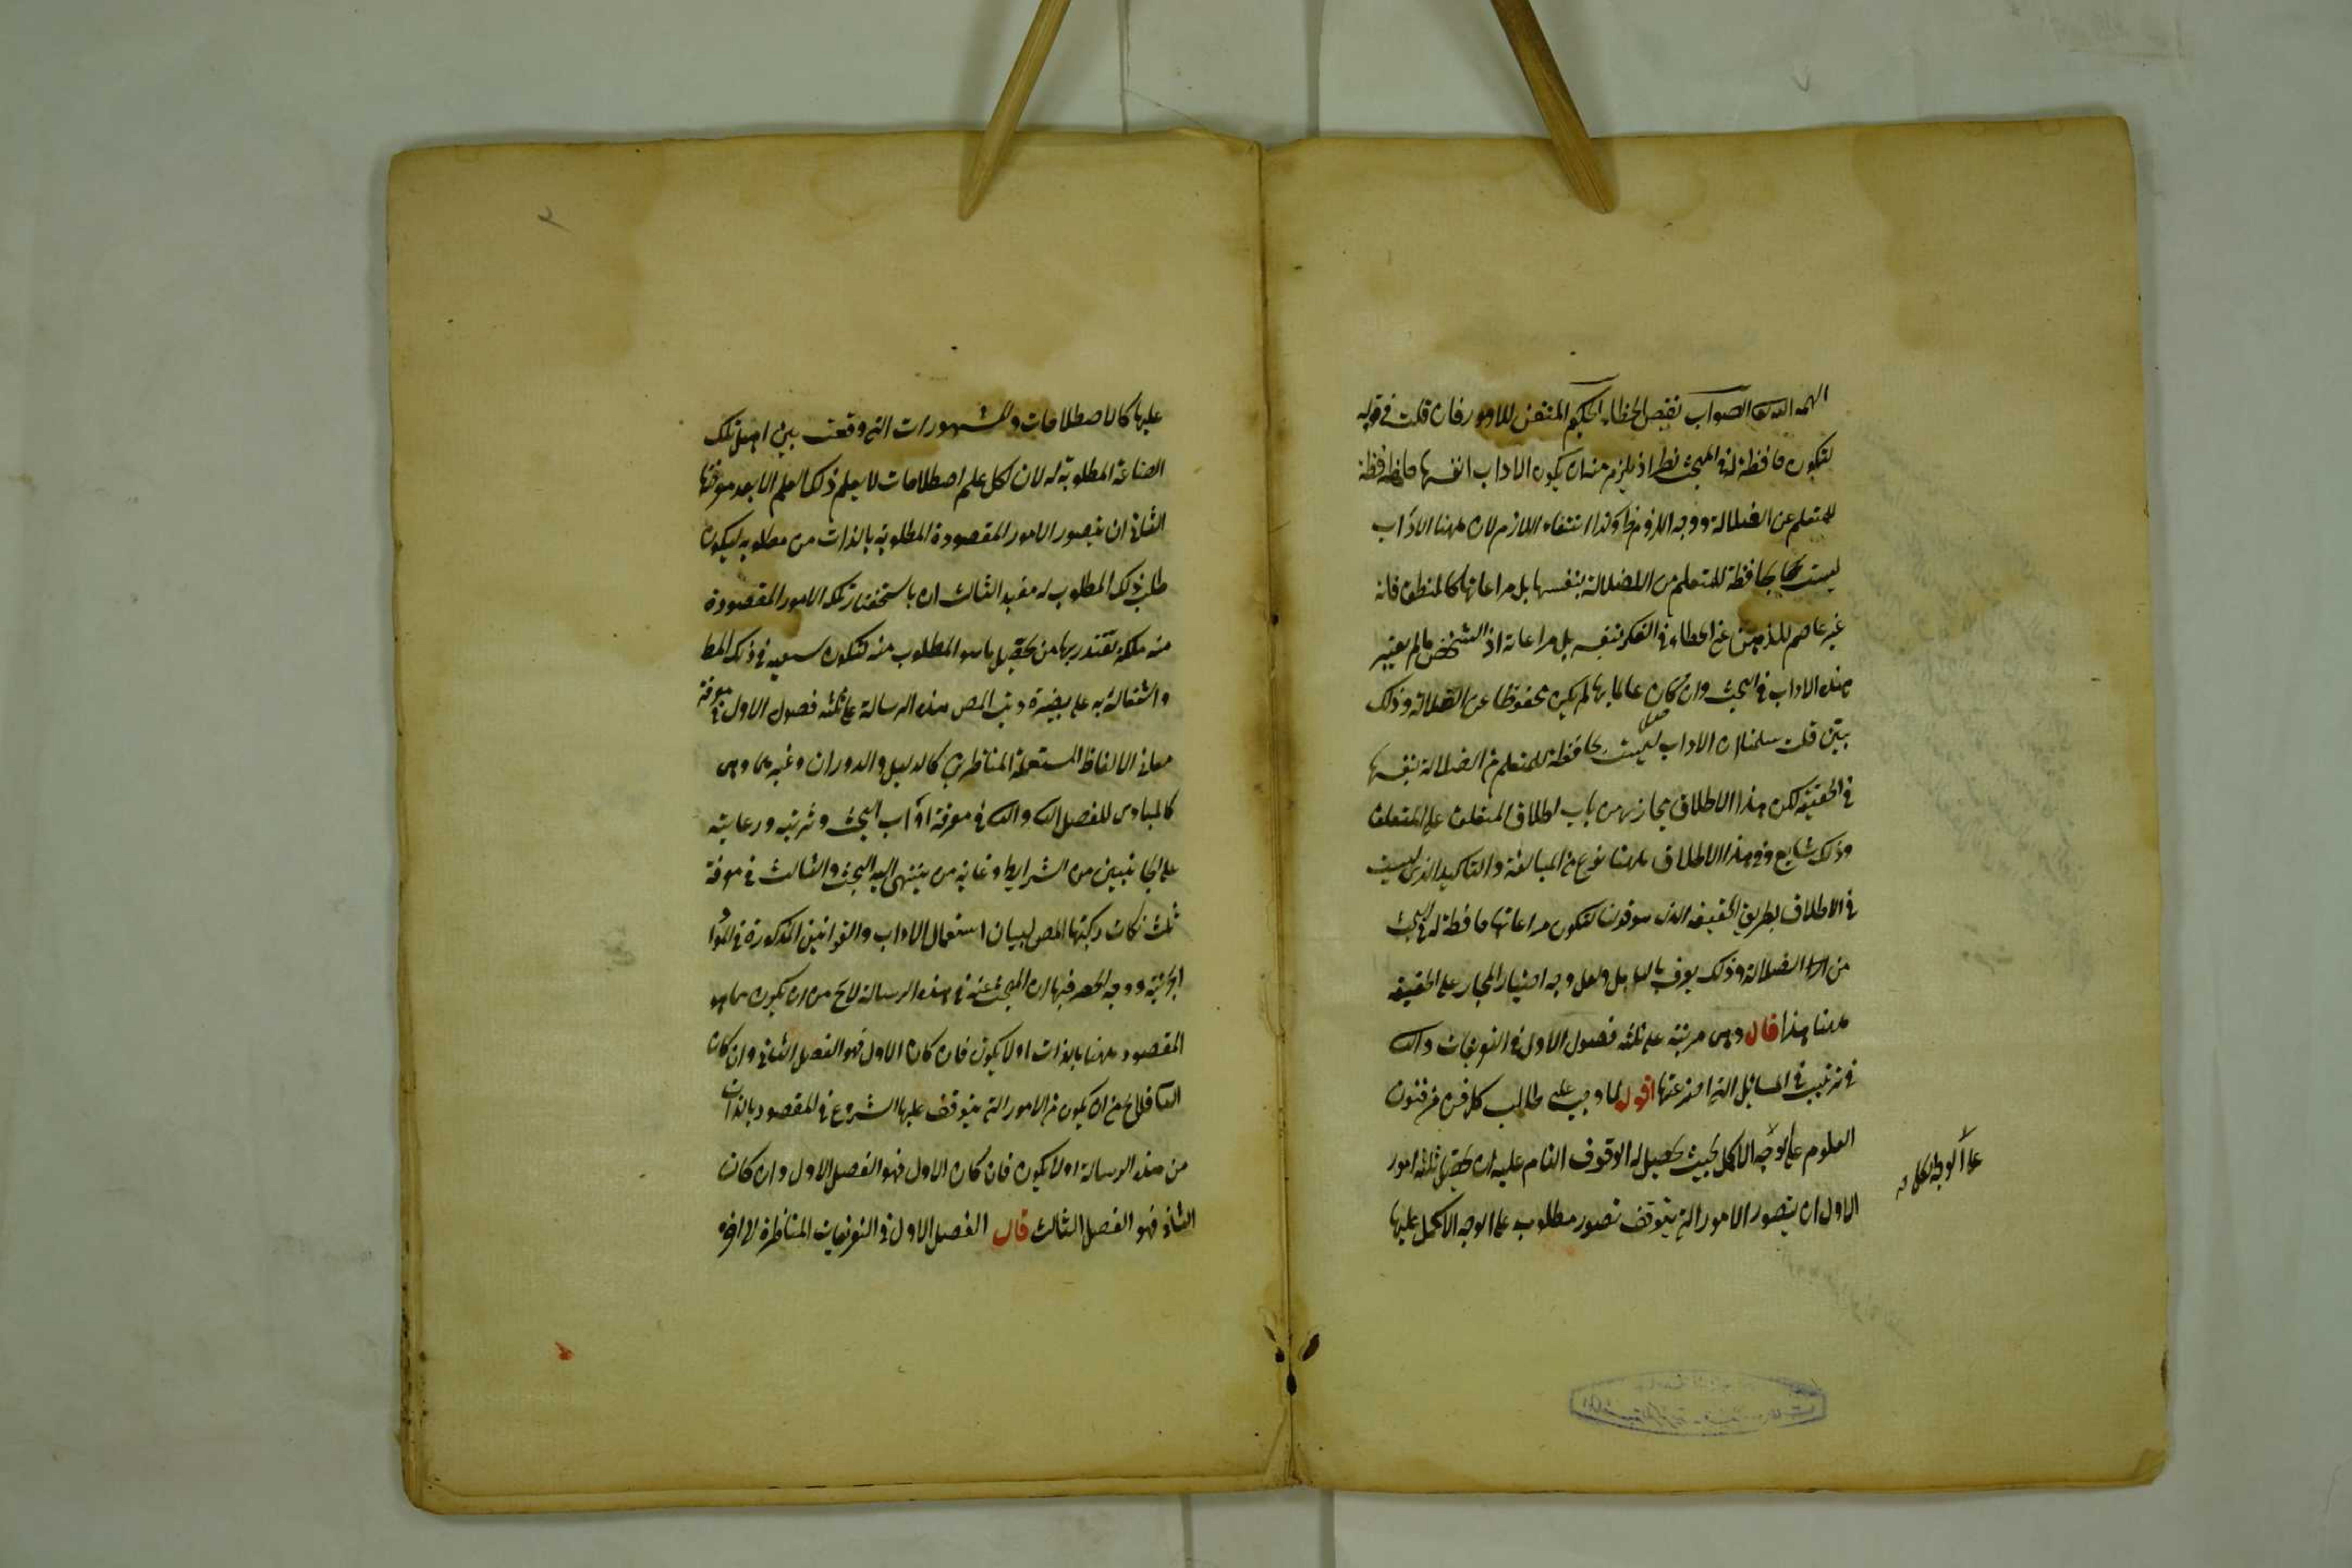 الهمه الله الصواب نقيض الخطاء الحكيم المتقن للامور فان قلت في قوله
لتكون حافظة له في البحث نظر اذ يلزم منه ان يكون الاداب انفسها حافظة
للمتعلم عن الضلالة ووجه اللزوم ظ وكذا انتفاء اللازم لان ههنا الاداب
ليست بحافظة للمتعلم من الضلالة بنفسها بل مراعاتها كالمنطق فانه
غير عاصم للذهن عن الخطاء في الفكر بنفسه بل مراعاته اذ الشخص مالم يعتبر
هذه الاداب في البحث وان كان عالما بها لم يكن محفوظا عن الضلالة وذلك
بين قلت سلمنا ان الاداب ليست بحافظة للمتعلم من الضلالة بنفسها
في الحقيقة لكن هذا الاطلاق مجاز من باب اطلاق المتعلق على المتعلق
وذلك شايع وفي هذا الاطلاق ههنا نوع من المبالغة والتاكيد الذي ليست
في الاطلاق بطريق الحقيقة الذي هو قولنا لتكون مراعاتها حافظة له في البحث
من الضلالة وذلك يعرف بالتامل ولعل وجه اختيار المجاز على الحقيقة
ههنا هذا قال وهي مرتبة على ثلثة فصول الاول في التعريفات والثا
في ترتيب في المسائل التي اخترعتها اقول لما وجب على طالب كل فن من فنون
العلوم على الوجه الاكمل بحيث يحصل له الوقوف التام عليه ان يحصل ثلثة امور
الاول ان يتصور الامور التي يتوقف تصور مطلوب على الوجه الاكمل عليها
على الوجه الاكمل
عليها كالاصطلاحات والمشهورات التي وقعت بين اهل تلك
الصناعة المطلوبة له لان لكل علم اصطلاحات لا يعلم ذلك العلم الا بعد معرفتها
الثاني ان يتصور الامور المقصودة المطلوبة بالذات من مطلوبه ليكون
طلب ذلك المطلوب له مفيدا الثالث ان باستحضار تلك الامور المقصودة
منه ملكة تقتدر بها من تحصيل ما هو المطلوب منه لتكون سعيه في ذلك المط
واشتغاله به على بصيرة رتب المص هذه الرسالة على ثلثة فصول الاول في معرفة
معاني الالفاظ المستعملة المناظرين كالدليل والدوران وغيرهما وهي
كالمبادي للفصل الثا والثا في معرفة اداب البحث وترتيبه ورعايته
على الجانبين من الشرايط وغاية من ينتهي اليه البحث والثالث في معرفة
ثلث نكات ركبتها المص لبيان استعمال الاداب والقوانين المذكورة في المواد
الجزئية ووجه الحصر فيها ان المبحث عنه في هذه الرسالة لا يخ من ان يكون مما هو
المقصود ههنا بالذات او لا يكون فان كان الاول فهو الفصل الثاني وان كان
الثا فلا يخ من ان يكون من الامور التي يتوقف عليها الشروع في المقصود بالذات
من هذه الرسالة او لا يكون فان كان الاول فهو الفصل الاول وان كان
الثاني فهو الفصل الثالث قال الفصل الاول في التعريفات المناظرة الى اخره